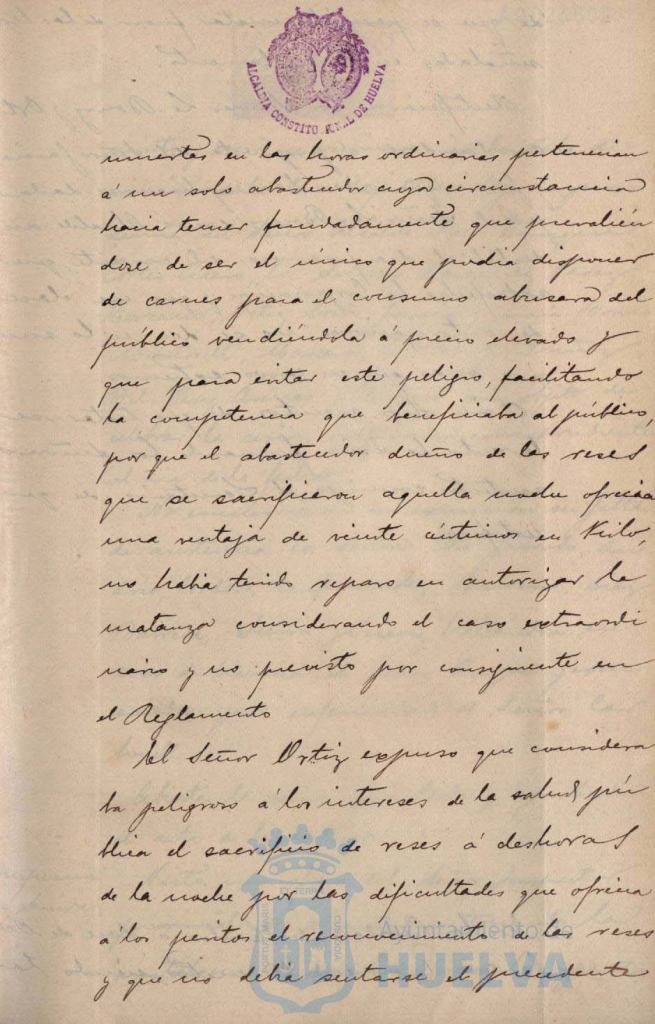 ALCALDIA CONSTITUCIONAL DE HUELVA
muertas en las horas ordinarias pertenecian
á un solo abastecedor cuya circunstancia
hacia temer fundadamente que prevalién
dose de ser el único que podia disponer
de carnes para el consumo abusara del
público vendiéndola á precio elevado y
que para evitar este peligro, facilitando
la competencia que beneficiaba al público,
por que el abastecedor dueño de las reses
que se sacrificaron aquella noche ofrecia
una ventaja de veinte céntimos en Kilo,
no habia tenido reparo en autorizar la
matanza considerando el caso extraordi
nario y no previsto por consiguiente en
el Reglamento
El Señor Ortiz expuso que considera
ba peligroso á los intereses de la salud pú
blica el sacrificio de reses á deshoras
de la noche por las dificultades que ofrecia
á los peritos el reconocimiento de las reses
y que no debia sentarse el precedente
Ayuntamiento de
HUELVA